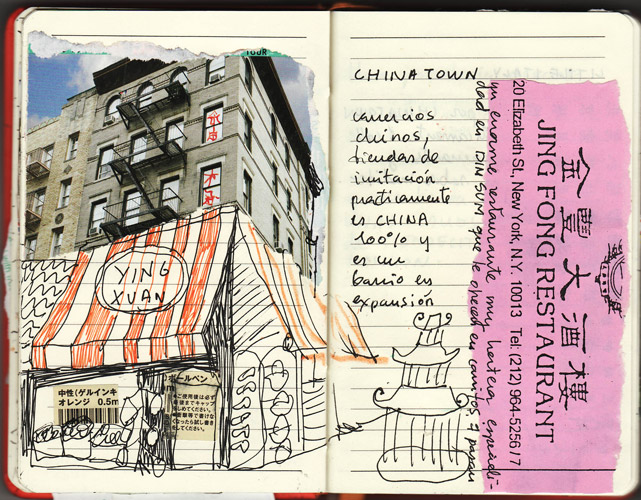 TOUR
YING
XUAN
中性(ゲルインキ
オレンジ 0.5m
ボールペン
CHINATOWN
comercios
chinos,
tiendas de
imitación
practicamente
es CHINA
100% y
es un
barrio en
expansión
un enorme restaurante muy hortera especiali-
dad en DIN SUM que te ofrecen en carritos q pasan
金豐大酒樓
JING FONG RESTAURANT
20 Elizabeth St., New York, N.Y. 10013 Tel: (212) 964-5256 / 7